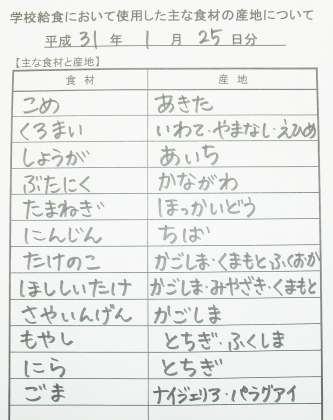 学校給食において使用した主な食材の産地について
平成 31 年 1 月 25 日分
【主な食材と産地】
食材 産地
こめ あきた
くろまい いわて・やまなし・えひめ
しょうが あいち
ぶたにく かながわ
たまねぎ ほっかいどう
にんじん ちば
たけのこ かごしま・くまもと・ふくおか
ほししいたけ かごしま・みやざき・くまもと
さやいんげん かごしま
もやし とちぎ・ふくしま
にら とちぎ
ごま ナイジェリア・パラグアイ